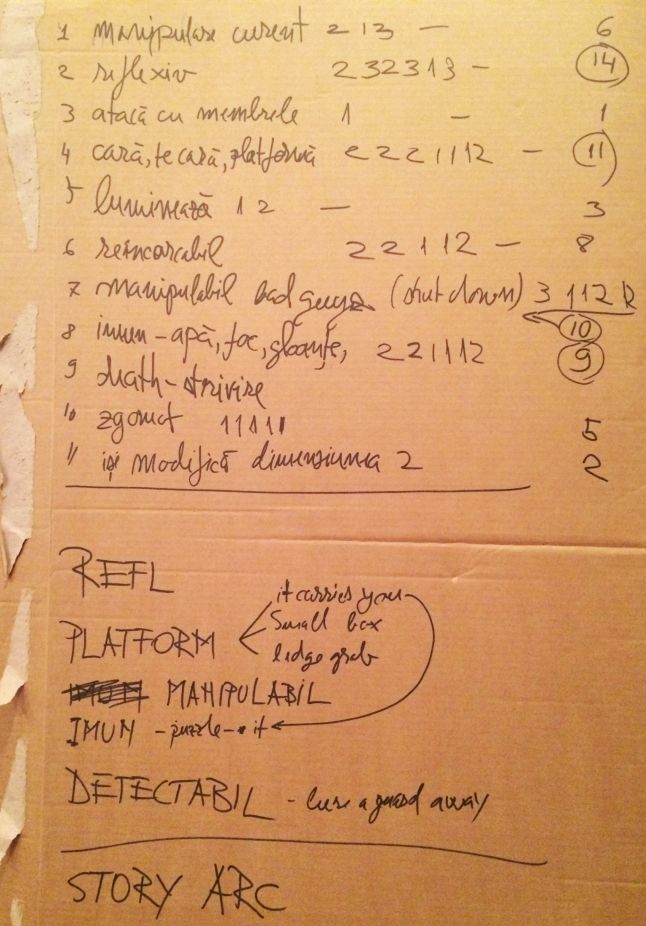 1 manipulare curent 2 1 3 — 6
2 reflexiv 2 3 2 3 1 3 — 14
3 atacă cu membrele 1 — 1
4 cară, te cară, platformă 2 2 2 1 1 1 2 — 11
5 luminează 1 2 — 3
6 reîncarcabil 2 2 1 1 2 — 8
7 manipulabil bad guys (shut down) 3 1 1 2
10
8 imun - apă, foc, gloanțe, 2 2 1 1 1 2 9
9 death - strivire
10 zgomot 1 1 1 1 1 5
11 își modifică dimensiunea 2 2
REFL
it carries you
PLATFORM small box
ledge grab
MANIPULABIL
IMUN - puzzle - it
DETECTABIL - lure a guard away
STORY ARC